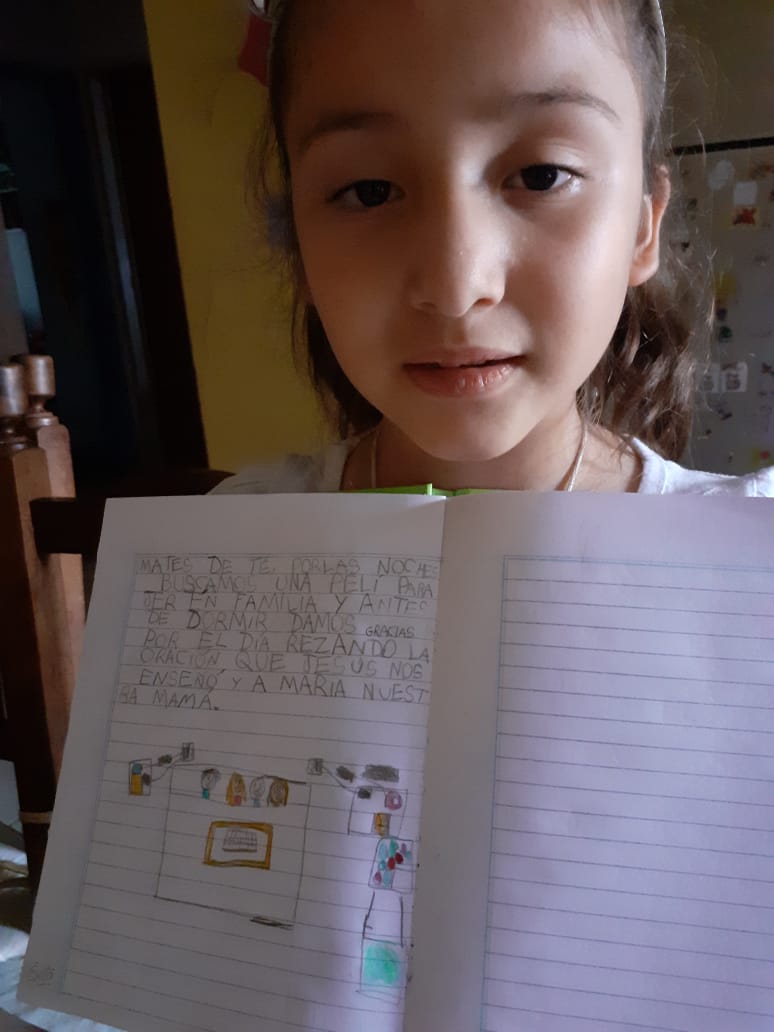 MATES DE TE. POR LAS NOCHES
BUSCAMOS UNA PELI PARA
VER EN FAMILIA Y ANTES
DE DORMIR DAMOS GRACIAS
POR EL DÍA REZANDO LA
ORACIÓN, QUE JESÚS NOS
ENSEÑÓ, Y A MARIA NUEST
RA MAMÁ.